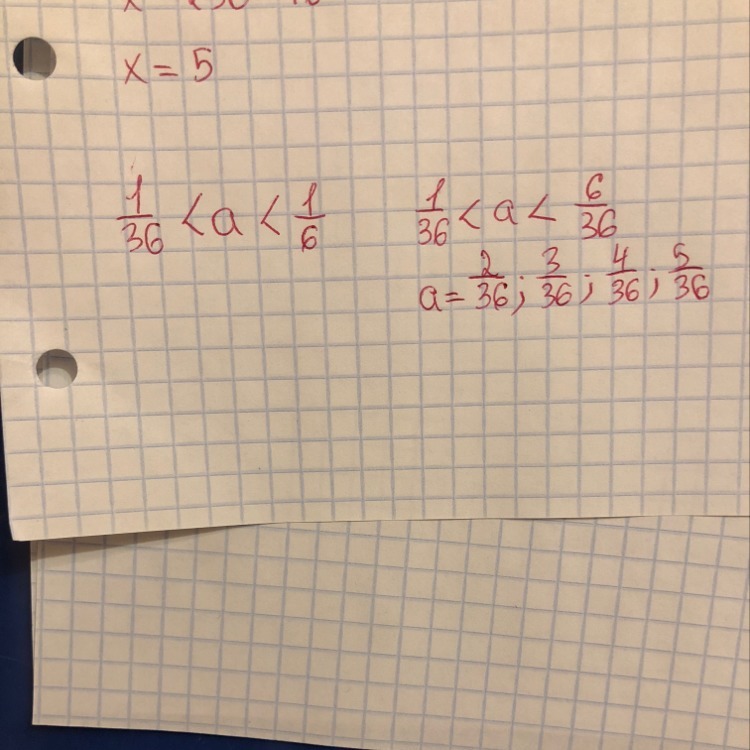 x = 5
1/36 < a < 1/6
1/36 < a < 6/36
a = 2/36; 3/36; 4/36; 5/36